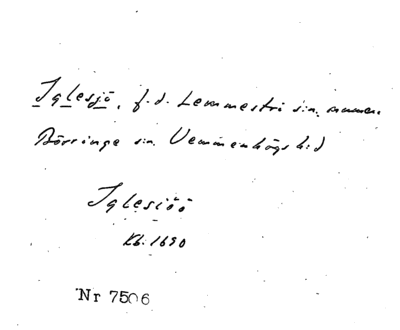 Iglesjö, f.d. Lemmestri sn. numer.
Börringe sn. Vemmenhögs hd
Iglesiöö
Kb. 1690
Nr 7506